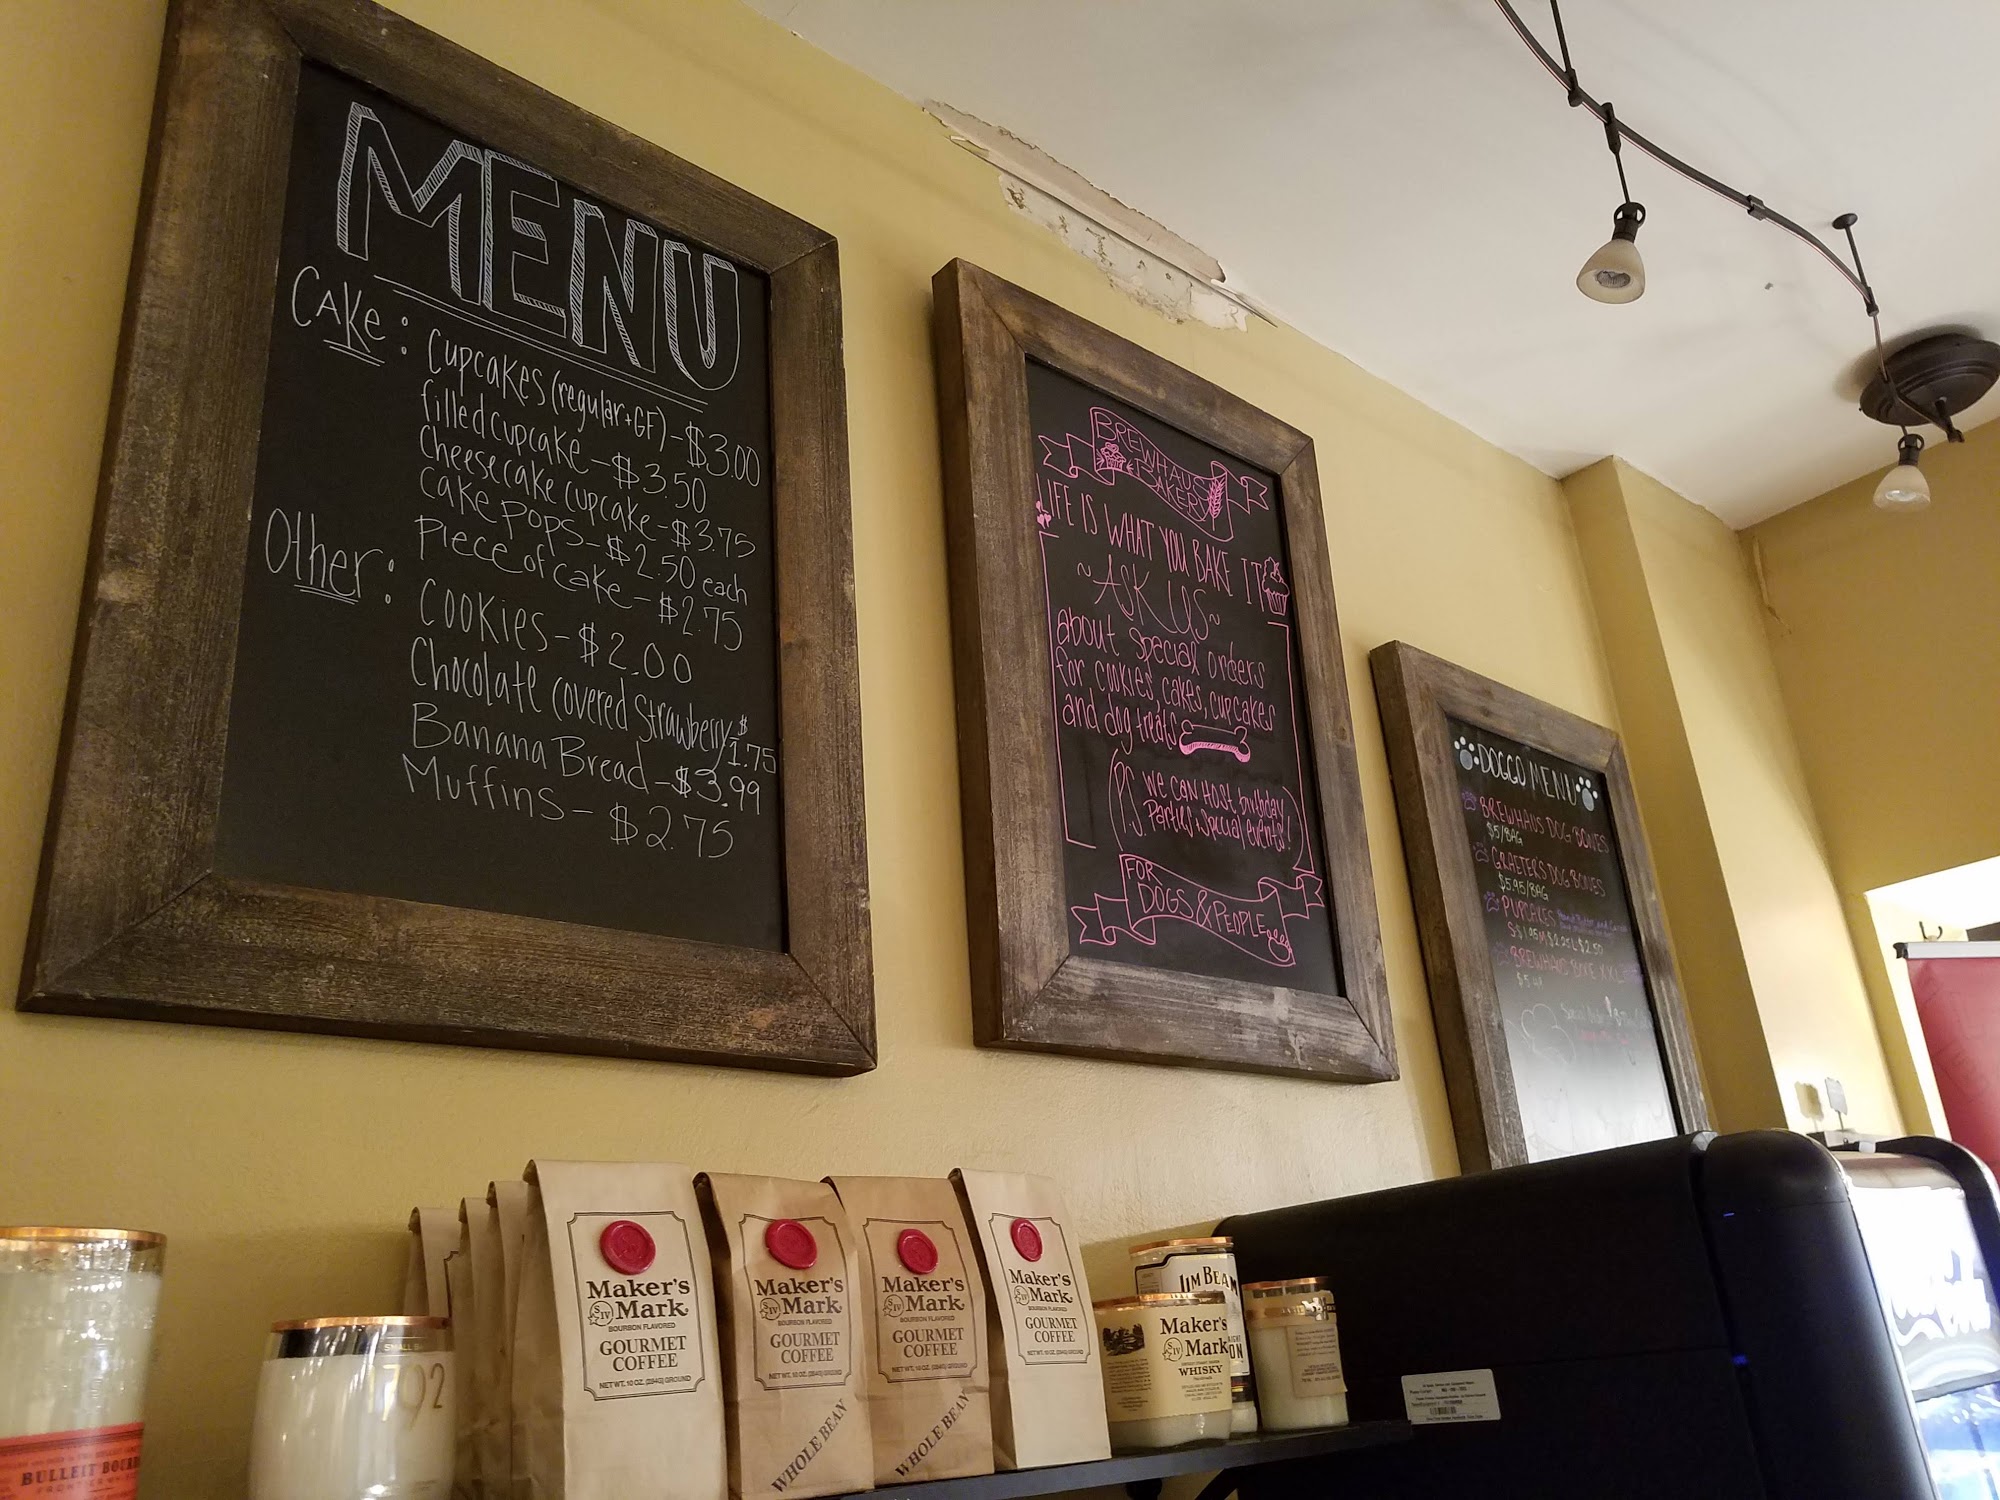 MENU
Cake: Cupcakes (regular+GF) - $3.00
filled cupcake - $3.50
Cheesecake cupcake - $3.75
cake pops - $2.50 each
piece of cake - $2.75
Other: Cookies - $2.00
Chocolate covered Strawberry - $1.75
Banana Bread - $3.99
Muffins - $2.75
BREWHAUS
BAKERY
LIFE IS WHAT YOU BAKE IT
~ASK US~
about special orders
for cookies, cakes, cupcakes
and dog treats
(P.S. we can host birthday
parties + special events!)
FOR
DOGS & PEOPLE
DOGGO MENU
BREWHAUS DOG BONES
$5/BAG
GRAETER'S DOG BONES
$5.95/BAG
PUPCAKES
S-$1.95 M $2.25 L $2.50
BREWHAUS BONE XXL
Maker's
SIV Mark
BOURBON FLAVORED
GOURMET
COFFEE
NET WT. 10 OZ. (284G) GROUND
Maker's
SIV Mark
BOURBON FLAVORED
GOURMET
COFFEE
WHOLE BEAN
Maker's
SIV Mark
BOURBON FLAVORED
GOURMET
COFFEE
WHOLE BEAN
Maker's
SIV Mark
BOURBON FLAVORED
GOURMET
COFFEE
NET WT. 10 OZ. (284G) GROUND
JIM BEAM
Maker's
SIV Mark
WHISKY
1792
BULLEIT BOURB
FRONTIER